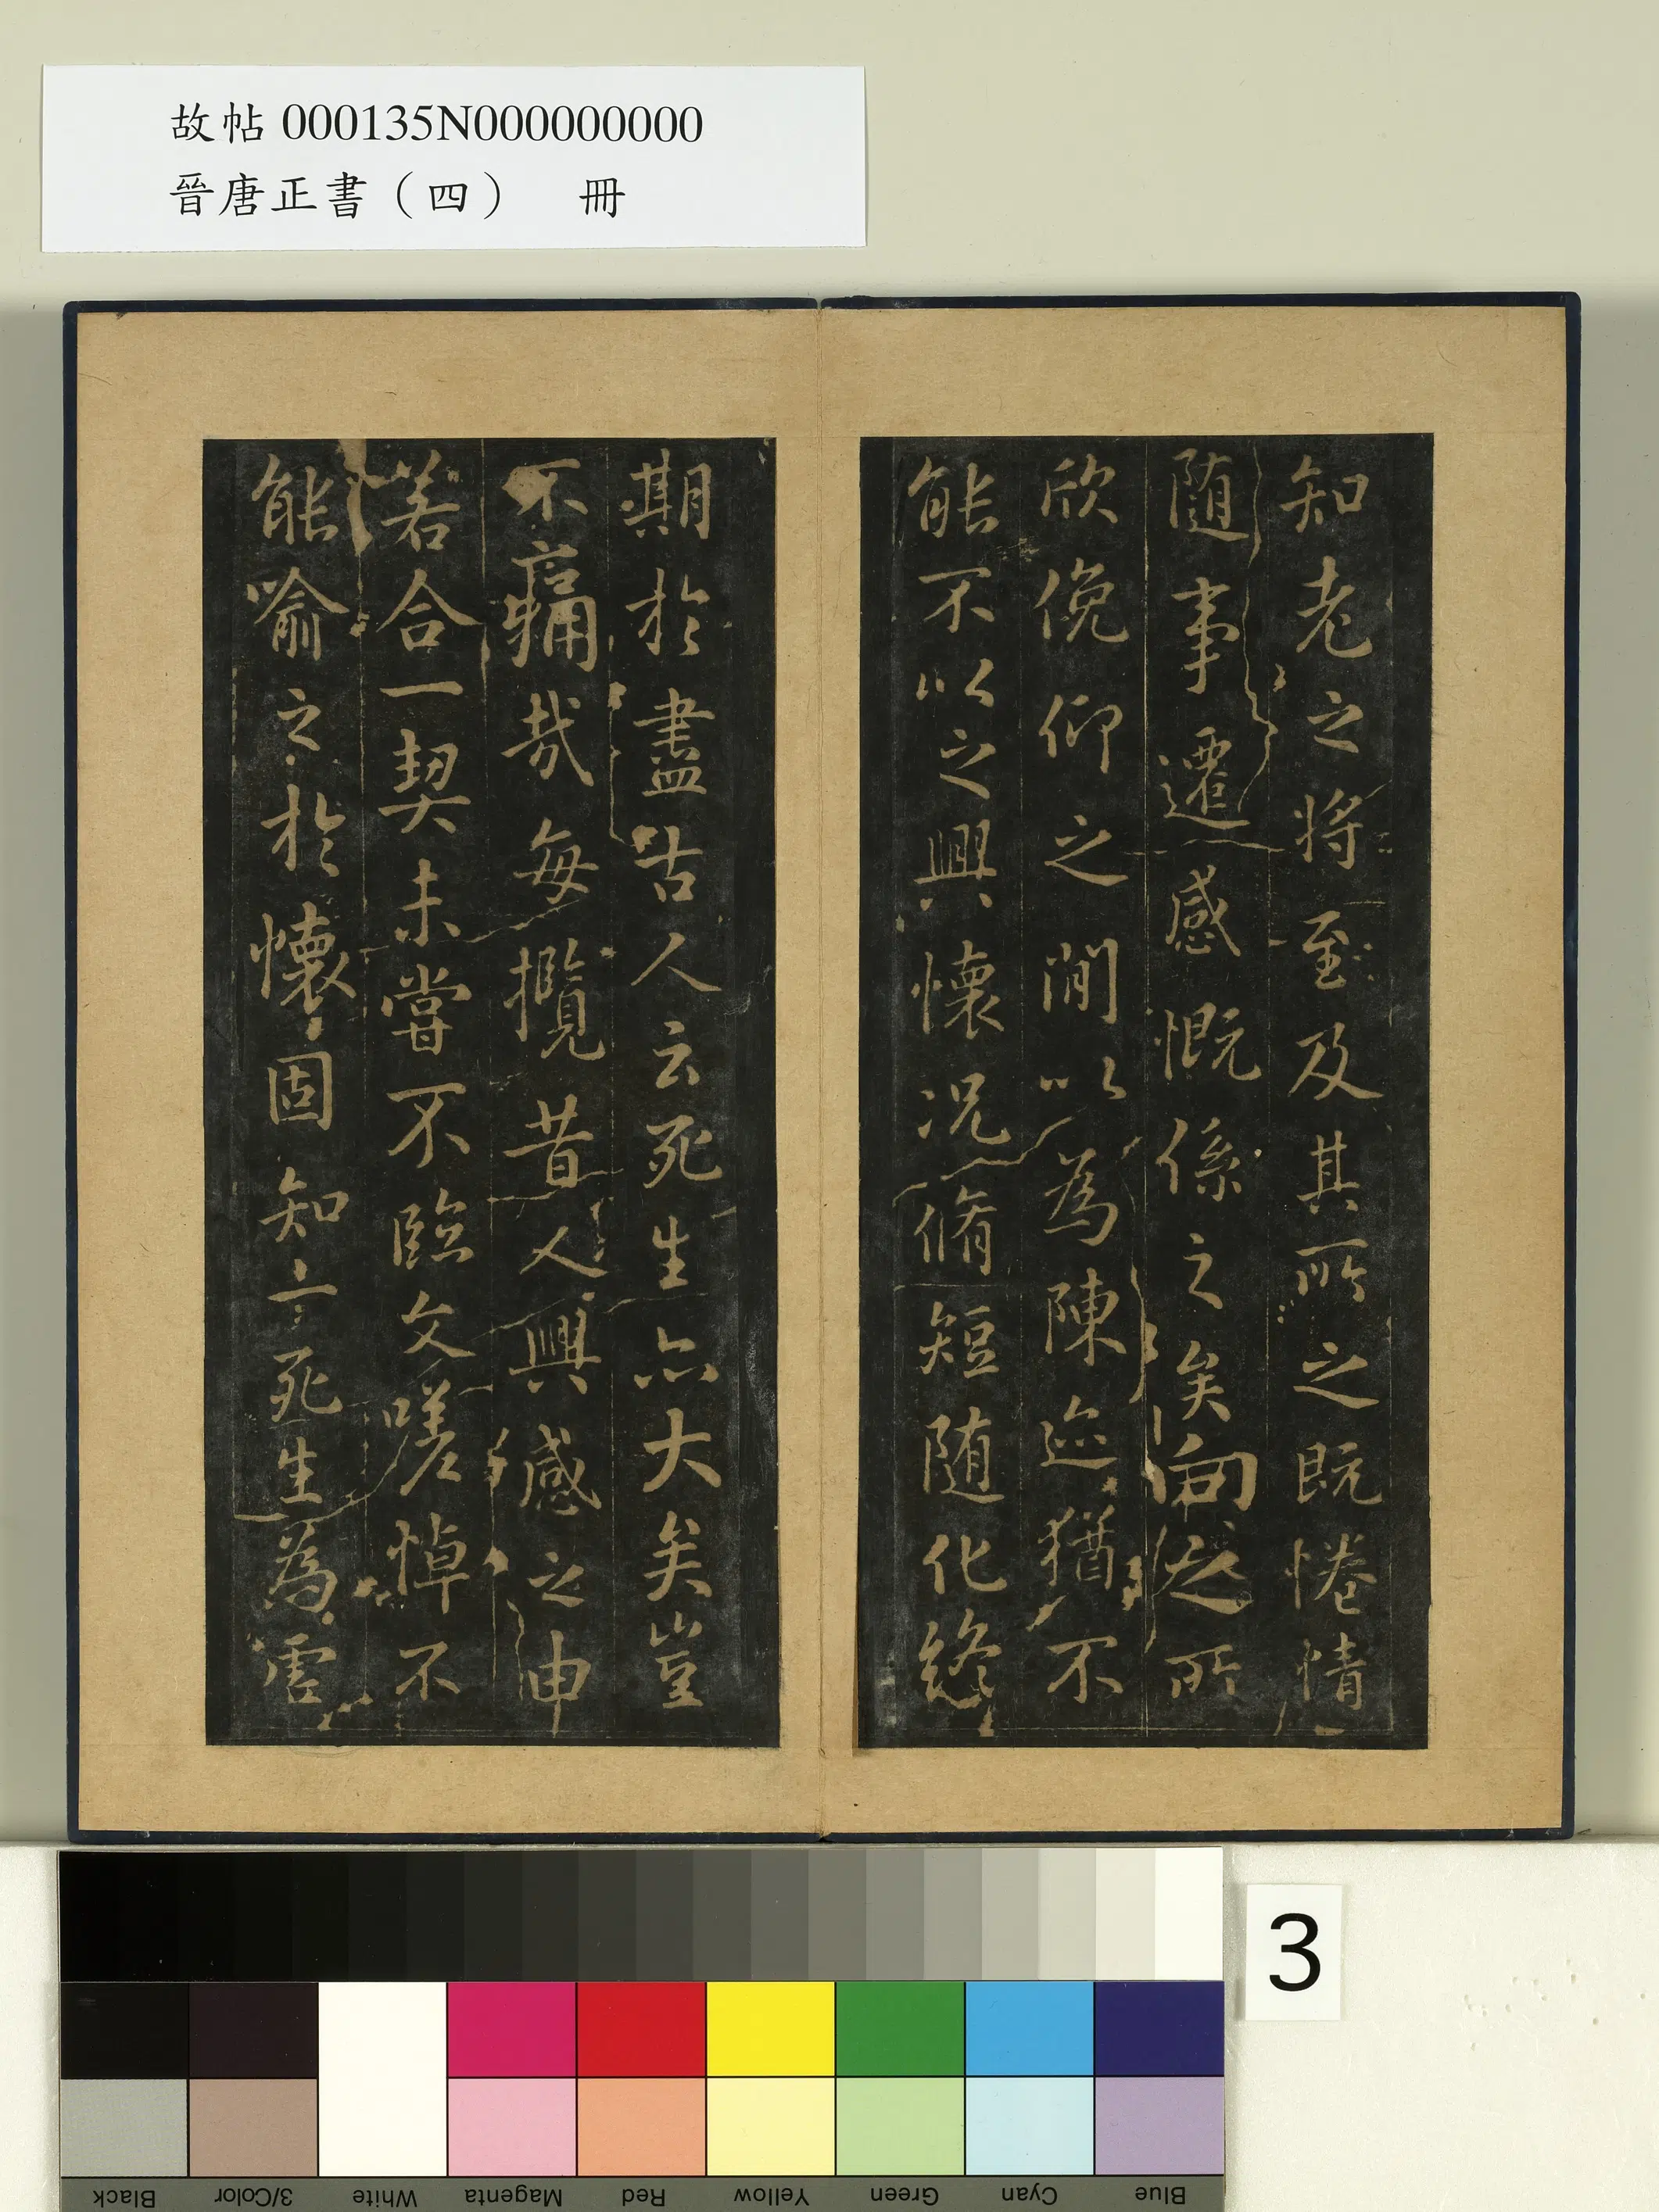 故帖 000135N000000000
晉唐正書（四） 冊
知老之將至及其所之既惓情
随事遷感慨係之矣向之所
欣俛仰之間以為陳迹猶不
能不以之興懷况脩短随化終
期於盡古人云死生亦大矣豈
不痛哉每攬昔人興感之由
若合一契未嘗不臨文嗟悼不
能喻之於懷固知一死生為虛
3
Black
3/Color
White
Magenta
Red
Yellow
Green
Cyan
Blue